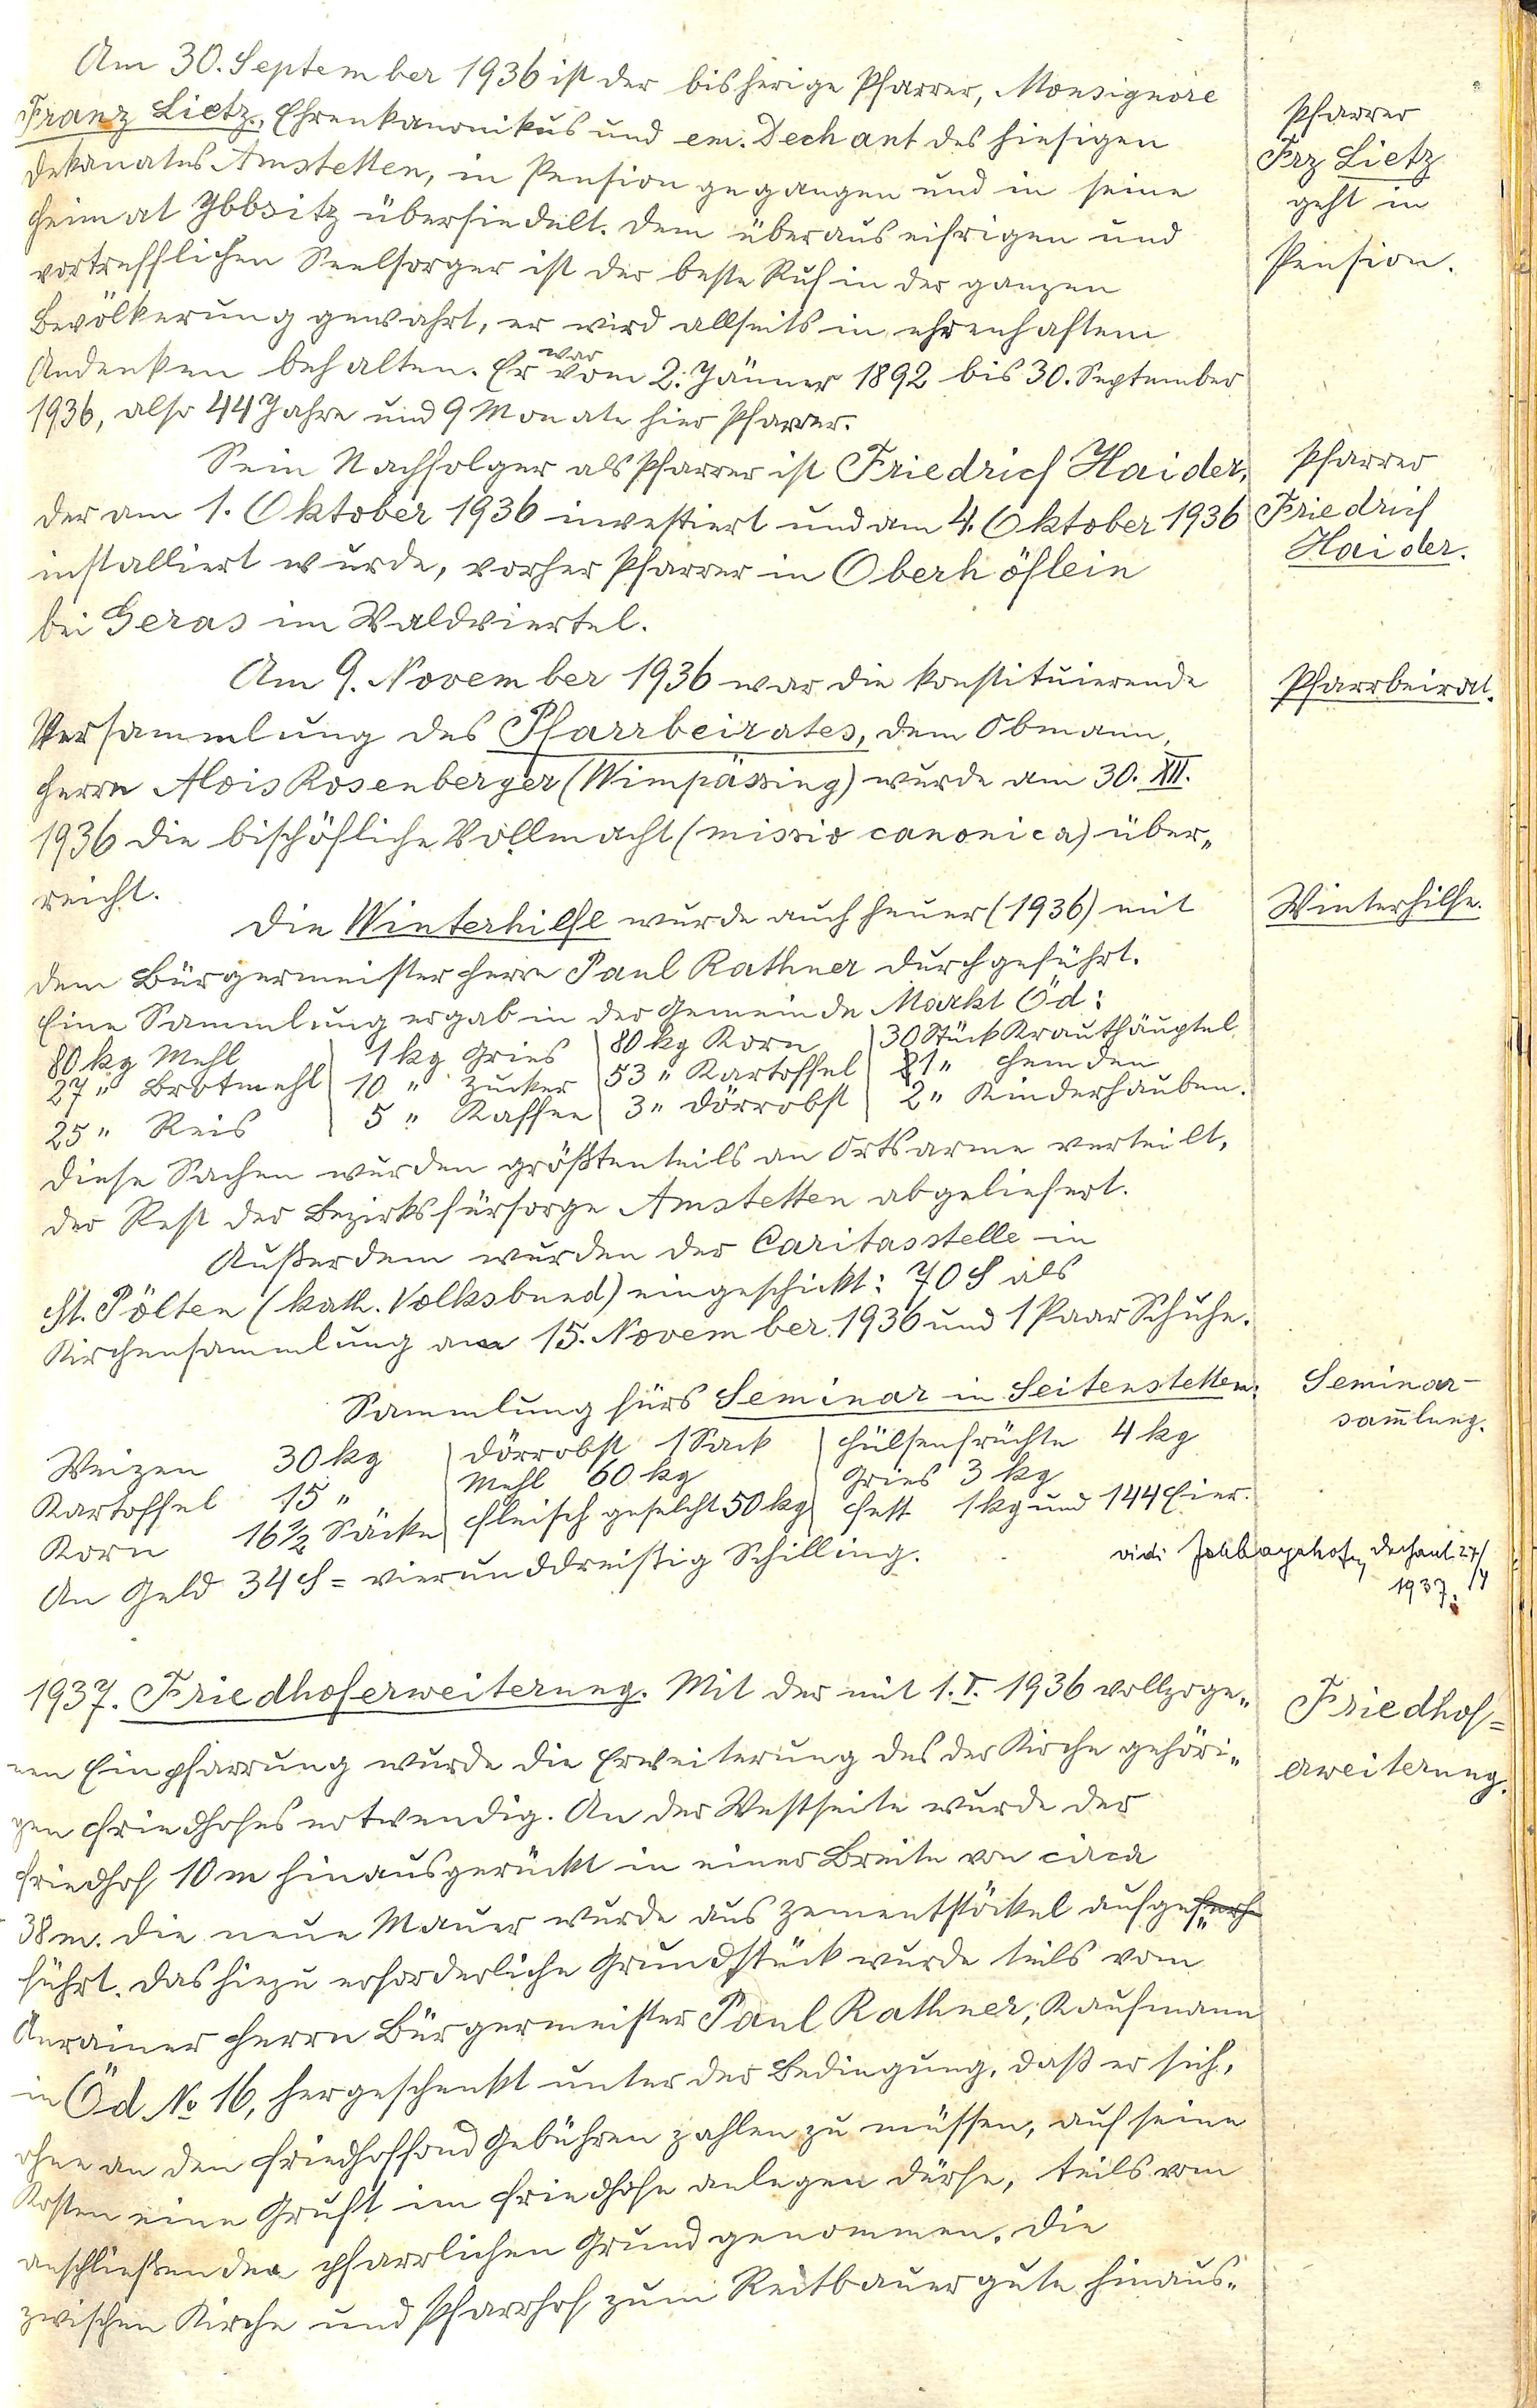 Am 30. September 1936 ist der bisherige Pfarrer, Monsignore
Franz Lietz, Ehrenkanonikus und em. Dechant des hiesigen
Dekanates Amstetten, in Pension gegangen und in seine
Heimat Ybbsitz übersiedelt. Dem überaus eifrigen und
vortrefflichen Seelsorger ist der beste Ruf in der ganzen
Bevölkerung gewahrt, er wird allseits in ehrenhaftem
Andenken behalten. Er war vom 2. Jänner 1892 bis 30. September
1936, also 44 Jahre und 9 Monate hier Pfarrer.
Pfarrer
Frz Lietz
geht in
Pension.
Sein Nachfolger als Pfarrer ist Friedrich Haider,
der am 1. Oktober 1936 investiert und am 4. Oktober 1936
installiert wurde, vorher Pfarrer in Oberhöflein
bei Geras im Waldviertel.
Pfarrer
Friedrich
Haider.
Am 9. November 1936 war die konstituierende
Versammlung des Pfarrbeirates, dem Obmann,
Herrn Alois Rosenberger (Wimpässing) wurde am 30. XII.
1936 die bischöfliche Vollmacht (missio canonica) über„
reicht.
Pfarrbeirat.
Die Winterhilfe wurde auch heuer (1936) mit
dem Bürgermeister Herrn Paul Rathner durchgeführt.
Eine Sammlung ergab in der Gemeinde Markt Öd:
Winterhilfe.
80 kg Mehl | 1 kg Gries | 80 kg Korn | 30 Stück Krauthäuptel
27 " Brotmehl | 10 " Zucker | 53 " Kartoffel | 21 " Hemden
25 " Reis | 5 " Kaffee | 3 " Dörrobst | 2 " Kinderhauben.
Diese Sachen wurden größtenteils an Ortsarme verteilt,
der Rest der Bezirksfürsorge Amstetten abgeliefert.
Außerdem wurden der Caritasstelle in
St. Pölten (kath. Volksbund) eingeschickt: 70 S als
Kirchensammlung am 15. November 1936 und 1 Paar Schuhe.
Sammlung fürs Seminar in Seitenstetten:
Seminar-
sam̄lung.
Weizen 30 kg | Dörrobst 1 Sack | Hülsenfrüchte 4 kg
Kartoffel 15 " | Mehl 60 kg | Gries 3 kg
Korn 16 1/2 Säcke | Fleisch geselcht 50 kg | Fett 1 kg und 144 Eier.
An Geld 34 S = vierunddreißig Schilling.
vidi Dechant 27/
1937. /4
1937. Friedhoferweiterung. Mit der mit 1. I. 1936 vollzoge„
nen Einpfarrung wurde die Erweiterung des der Kirche gehöri„
gen Friedhofes notwendig. An der Westseite wurde der
Friedhof 10 m hinausgerückt in einer Breite von circa
38 m. Die neue Mauer wurde aus Zementstöckel aufge„
führt. Das hiezu erforderliche Grundstück wurde teils vom
Anrainer Herrn Bürgermeister Paul Rathner, Kaufmann
in Öd No 16, hergeschenkt unter der Bedingung, daß er sich,
ohne an den Friedhoffond Gebühren zahlen zu müssen, auf seine
Kosten eine Gruft im Friedhofe anlegen dürfe, teils vom
anschließenden pfarrlichen Grund genommen. Die
zwischen Kirche und Pfarrhof zum Reitbauergute hinaus„
Friedhof=
erweiterung.